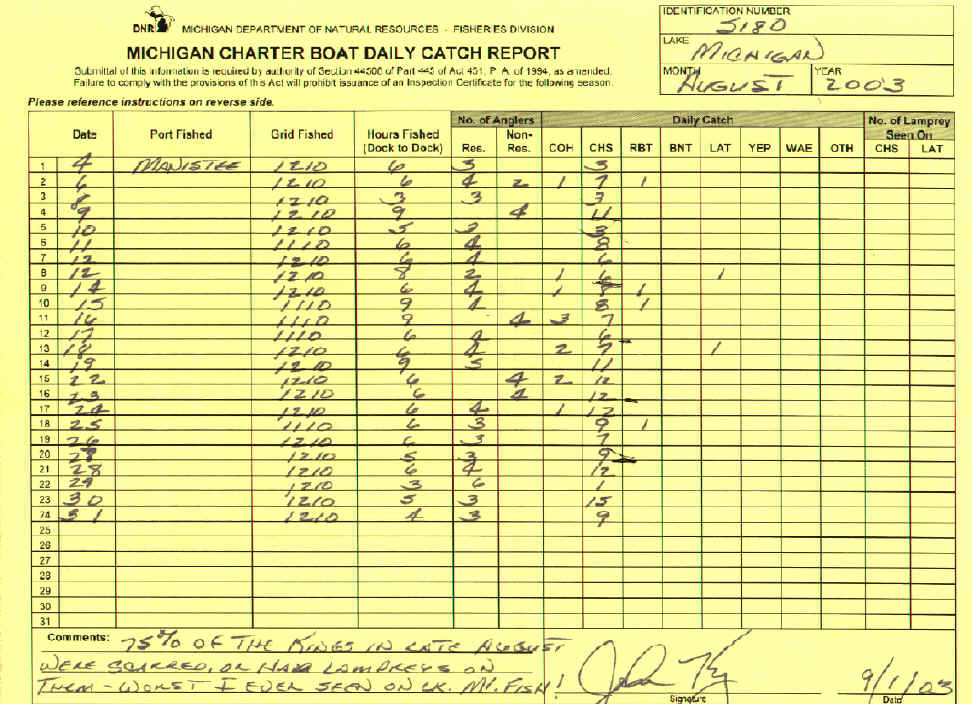 DNR MICHIGAN DEPARTMENT OF NATURAL RESOURCES - FISHERIES DIVISION
MICHIGAN CHARTER BOAT DAILY CATCH REPORT
Submittal of this information is required by authority of Section 44508 of Part 445 of Act 451, P. A. of 1994, as amended.
Failure to comply with the provisions of this Act will prohibit issuance of an Inspection Certificate for the following season.
Please reference instructions on reverse side.
IDENTIFICATION NUMBER
5180
LAKE
MICHIGAN
MONTH YEAR
AUGUST 2003
No. of Anglers Daily Catch No. of Lamprey
Date Port Fished Grid Fished Hours Fished Non- Seen On
(Dock to Dock) Res. Res. COH CHS RBT BNT LAT YEP WAE OTH CHS LAT
1 4 MANISTEE 1210 6 3 3
2 6 1210 6 4 2 1 7 1
3 8 1210 3 3 3
4 9 1210 9 4 11
5 10 1210 5 2 3
6 11 1110 6 4 8
7 12 1210 6 4 6
8 12 1210 8 2 1 6 1
9 14 1210 6 4 1 1
10 15 1110 9 4 8 1
11 16 1110 9 4 3 7
12 17 1110 6 4 6
13 18 1210 6 4 2 7 1
14 19 1210 9 5 11
15 22 1210 6 4 2 12
16 23 1210 6 4 12
17 24 1210 6 4 1 12
18 25 1110 6 3 9 1
19 26 1210 6 3 7
20 1210 5 3 9
21 28 1210 6 4 12
22 29 1210 3 6 1
23 30 1210 5 3 15
24 31 1210 4 3 9
25
26
27
28
29
30
31
Comments: 75% OF THE KINGS IN LATE AUGUST
WERE SCARRED, OR HAD LAMPREYS ON
THEM - WORST I EVER SEEN ON LK. MI. FISH!
Signature
9/1/03
Date